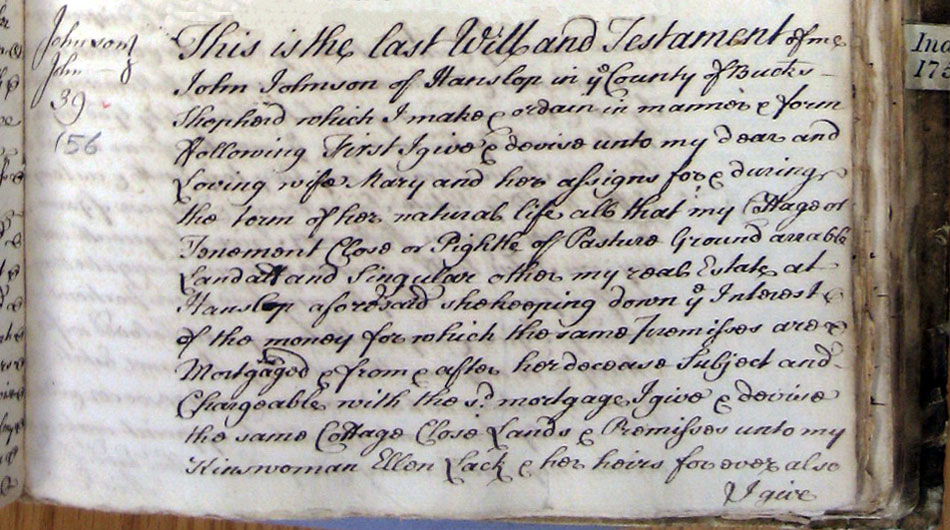 Johnson
John
39
156
This is the last Will and Testament of me
John Johnson of Hanslop in ye County of Bucks
Shepherd which I make & ordain in manner & form
following First I give & devise unto my dear and
Loving wife Mary and her assigns for & during
the term of her natural life all that my Cottage or
Tenement Close or Pightle of Pasture Ground arable
Land all and Singular other my real Estate at
Hanslop aforesaid she keeping down ye Interest
of the money for which the same Premisses are
Mortgaged & from & after her decease Subject and
Chargeable with the sd. mortgage I give & devise
the same Cottage Close Lands & Premisses unto my
Kinswoman Ellen Lack & her heirs for ever also
I give
Ind
174